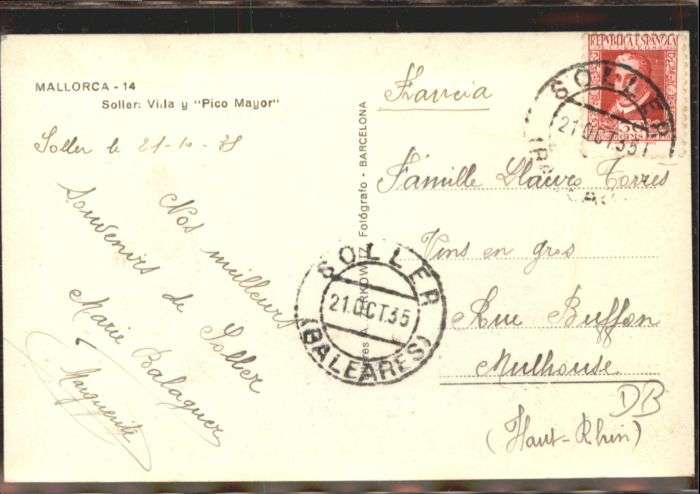 MALLORCA - 14
Soller: Villa y "Pico Mayor"
Soller le 21-10-35
Nos meilleurs
Souvenirs de Soller
Marie Balaguer
Marguerite
Fotógrafo - BARCELONA
Francia
Famille Llavres Torrès
Vins en gros
Rue Buffon
Mulhouse
(Haut-Rhin)
DB
REPUBLICA ESPAÑOLA
SOLLER
21 OCT 35
SOLLER
21 OCT 35
(BALEARES)